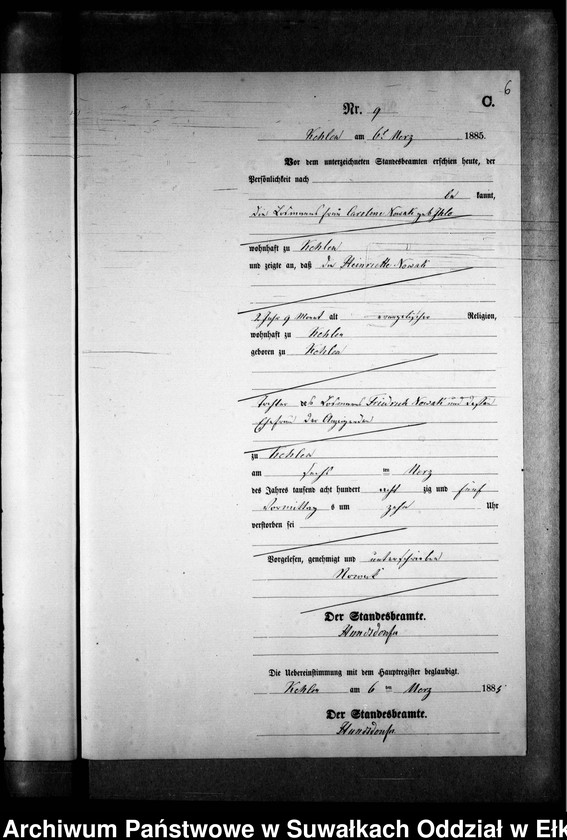 6
C.
Nr. 9
Kehlen am 6t Merz 1885.
Vor dem unterzeichneten Standesbeamten erschien heute, der
Persönlichkeit nach
be kannt,
die Losmannsfrau Caroline Nowak geb.
wohnhaft zu Kehlen
und zeigte an, daß die Heinriette Nowak
2 Jahr 9 Monat alt evangelischer Religion,
wohnhaft zu Kehlen
geboren zu Kehlen
tochter des Losmanns Friedrich Nowak und dessen
Ehefrau der Anzeigenden
zu Kehlen
am sechs ten Merz
des Jahres tausend acht hundert acht zig und fünf
Vormittag s um zehn Uhr
verstorben sei
Vorgelesen, genehmigt und unterschrieben
Nowak
Der Standesbeamte.
Die Uebereinstimmung mit dem Hauptregister beglaubigt.
Kehlen am 6 ten Merz 1885
Der Standesbeamte.
Archiwum Państwowe w Suwałkach Oddział w Ełk